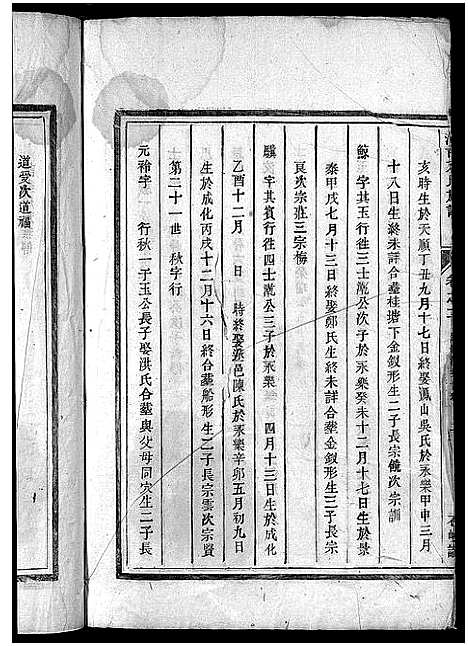 亥時生於天順丁丑九月十七日終娶溤山吳氏於永樂甲申三月
十八日生終未詳合墓桂塘下金釵形生二子長宗儀次宗訓
鯨 字其玉行徃三士瀛公次子於永樂癸未十二月十七日生於景
泰甲戌七月十三日終娶鄭氏生終未詳合墓金釵形生三子長宗
良次宗莊三宗梅
驥 字其賓行徃四士瀛公三子於永樂 四月十三日生於成化
乙酉十二月 日 時終娶 邑陳氏於永樂辛卯五月初九日
生於成化丙戌十二月十六日終合墓船形生二子長宗雲次宗賢
第二十一世 秋字行
元 字 行秋一子玉公長子娶洪氏合墓與父母同穴生二子長
道受次道福